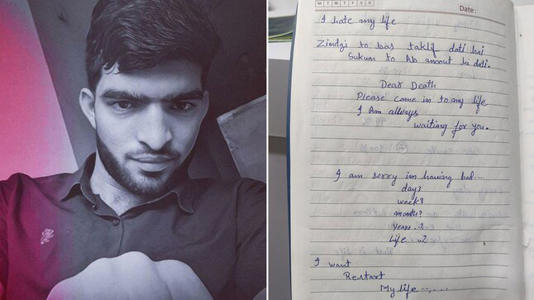 Date:
I hate my life
Zindgi to bas taklif deti hai
Sukun to Ab hi deti.
Dear Death
Please come in to my life
I Am always
waiting for you.
I am sorry im having bad...
days
week?
months?
years..?
Life..?
I want
Restart
My life ......